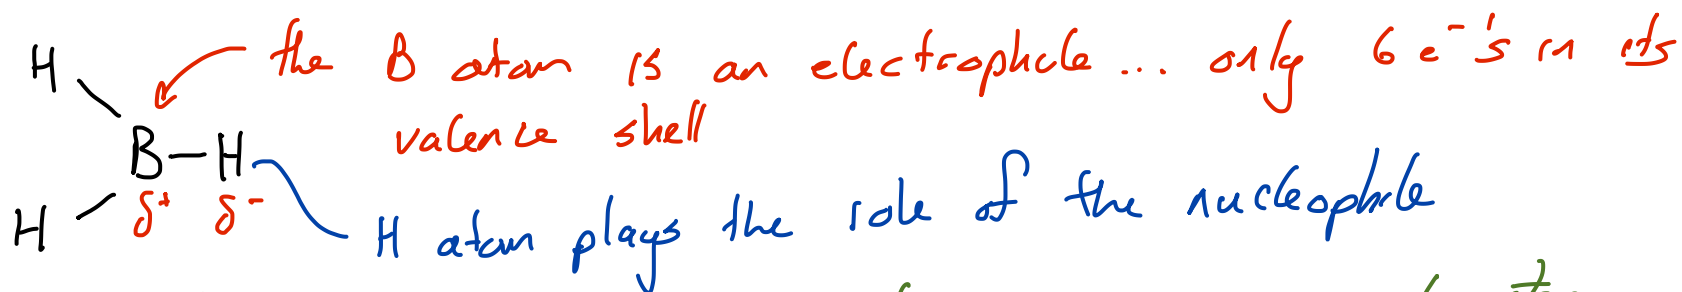 H the B atom is an electrophile ... only 6 e⁻'s in its
valence shell
B—H
δ⁺ δ⁻
H H atom plays the role of the nucleophile